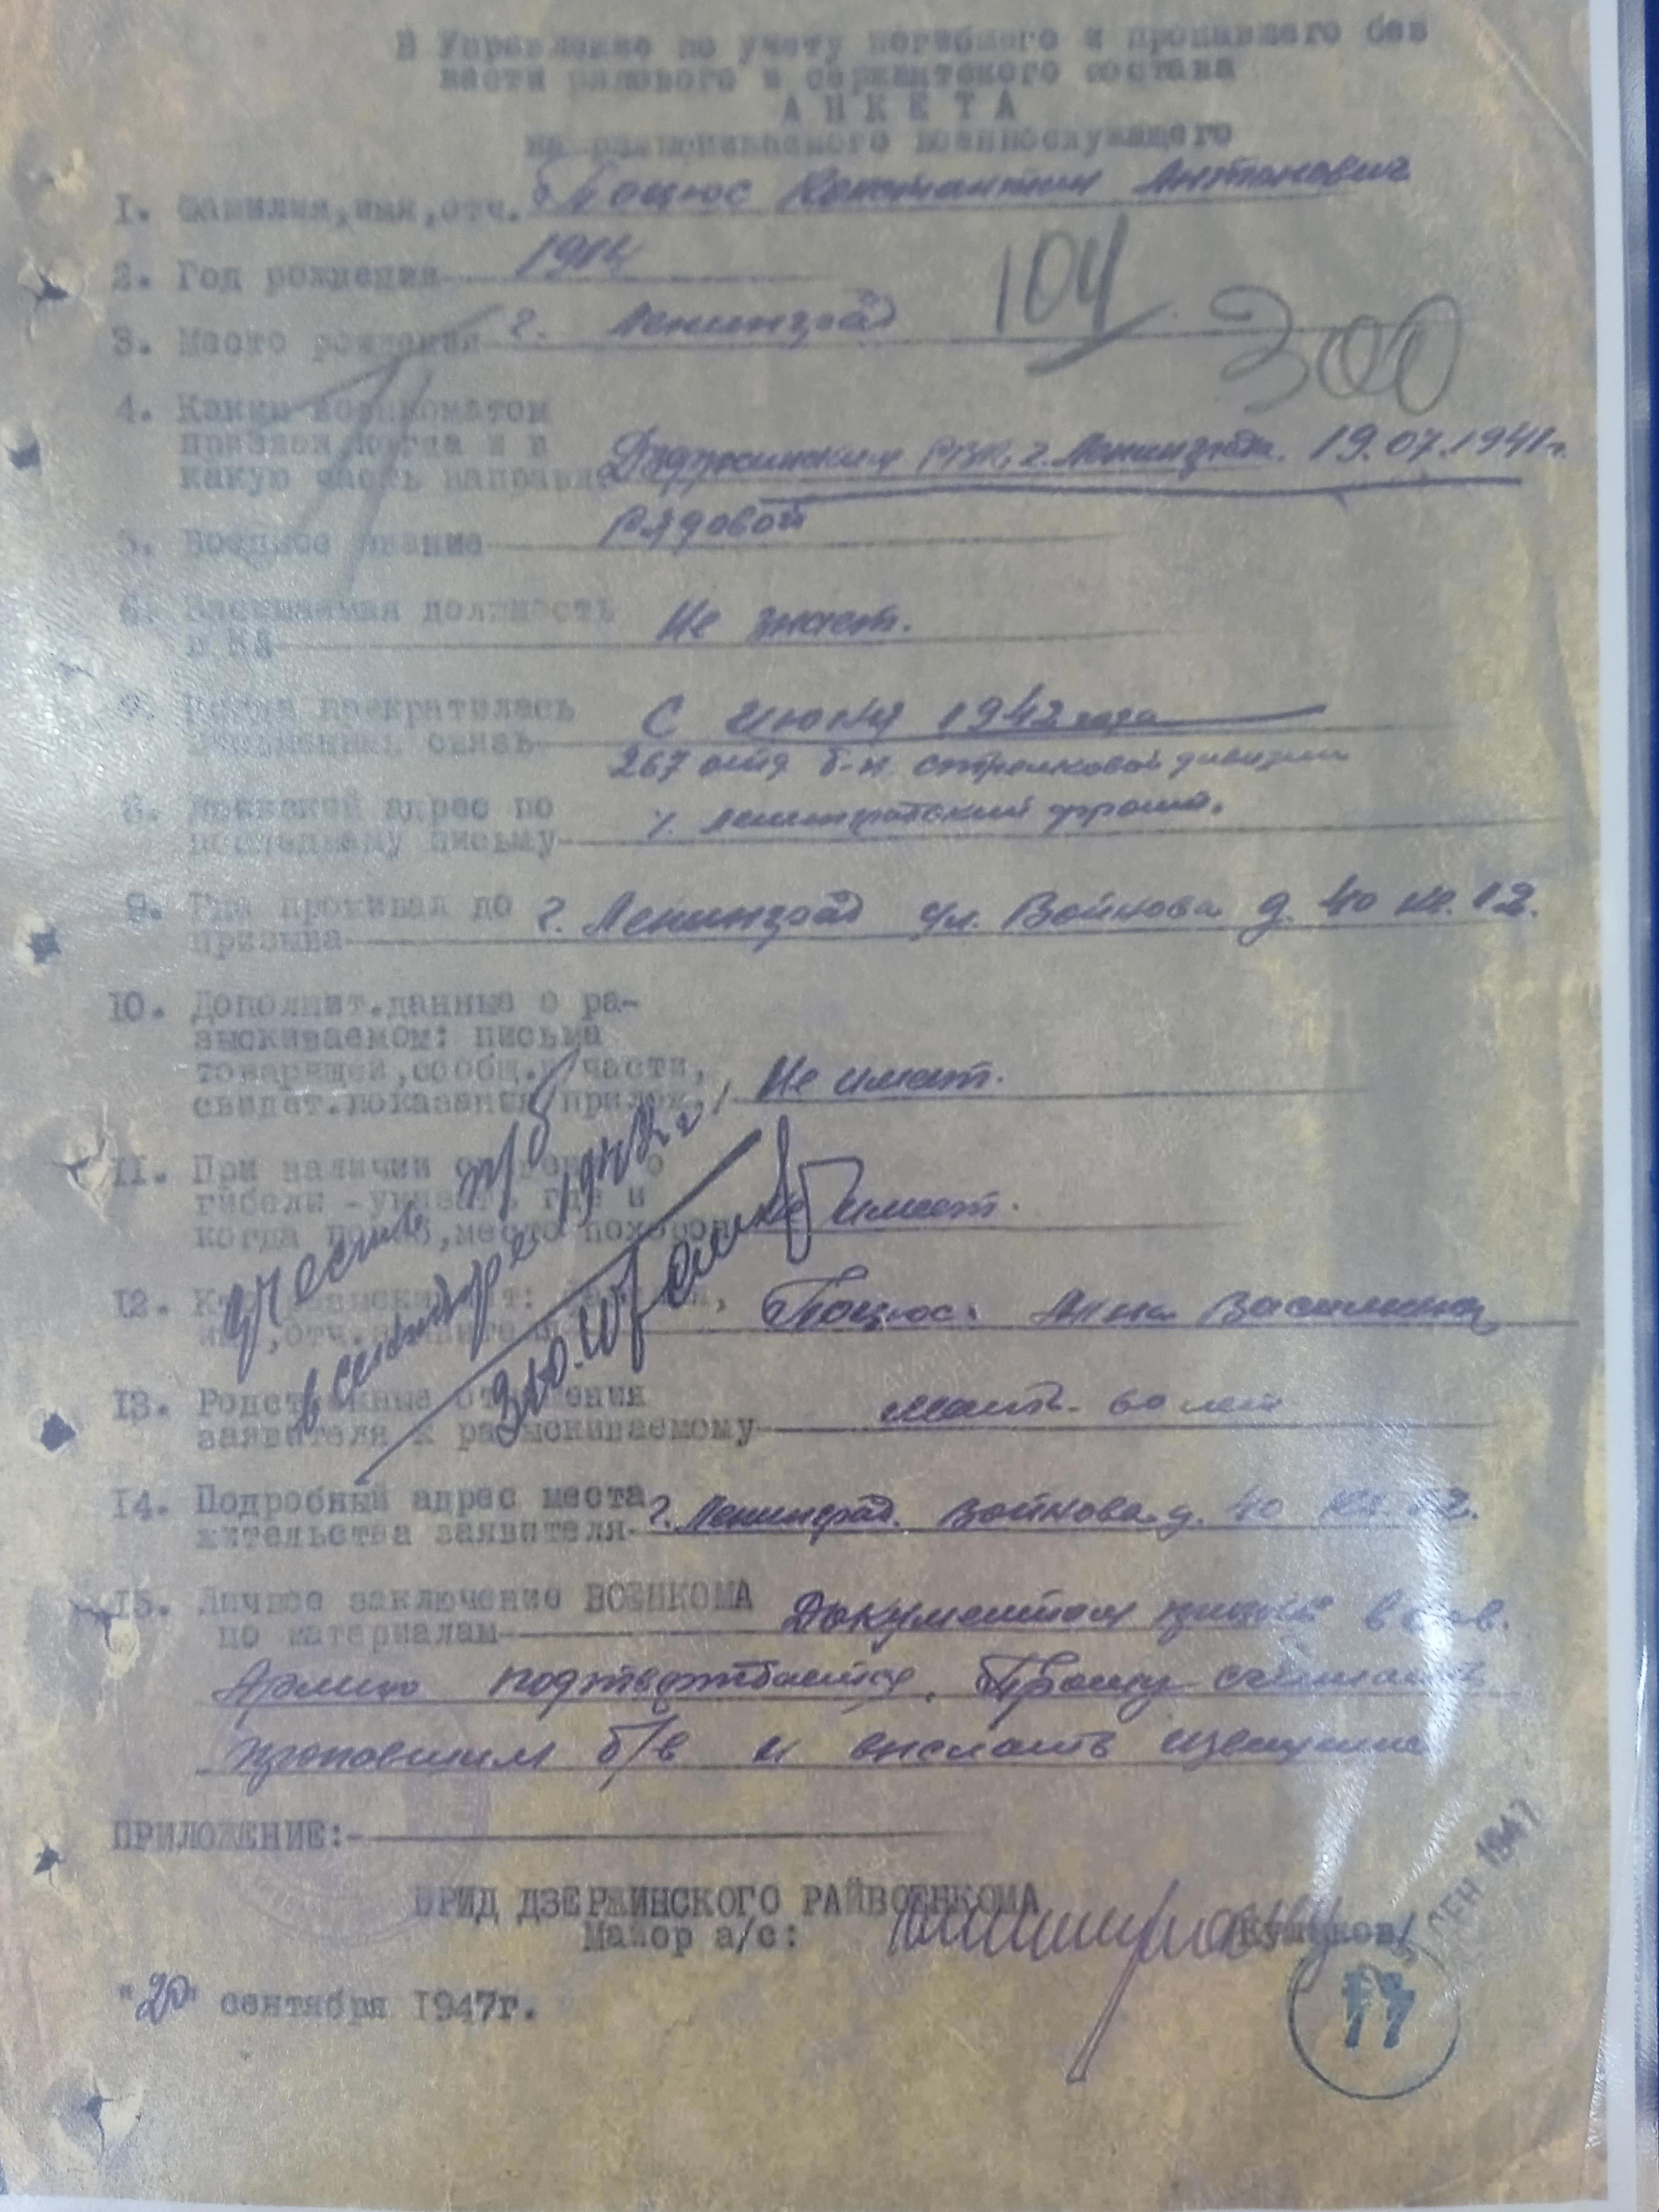 В Управление по учету погибшего и пропавшего без
вести рядового и сержантского состава
АНКЕТА
на разыскиваемого военнослужащего
1. Фамилия,имя,отч. Поцюс Константин Антонович
2. Год рождения 1914
104
3. Место рождения г. Ленинград
300
4. Каким военкоматом
призван,когда и в
какую часть направл. Дзержинским РВК, г. Ленинграда. 19.07.1941г.
5. Военное звание Рядовой
6. Занимаемая должность
в КА Не знает.
7. Когда прекратилась
письменная связь С июня 1942 года
8. Воинский адрес по
последнему письму 267 отд б-н стрелковой дивизии
Ленинградский фронт.
9. Где проживал до
призыва г. Ленинград ул. Войнова д. 40 кв. 12.
10. Дополнит.данные о ра-
зыскиваемом: письма
товарищей,сообщ. части,
свидет.показания/прилож./ Не имеет.
11. При наличии сведений о
гибели -указать где и
когда погиб,место похорон Не имеет.
учесть п/б
в сентябре 1942 г.
12. Кто разыскивает:
имя,отч. Поцюс. Анна Васильевна
13. Родственные отношения
заявителя к разыскиваемому мать. 60 лет
14. Подробный адрес места
жительства заявителя г. Ленинград. Войнова д. 40 кв. 12.
15. Личное заключение ВОЕНКОМА
по материалам Документом призыв в Сов.
Армию подтверждается. Прошу считать
пропавшим б/в и выслать извещение
ПРИЛОЖЕНИЕ:-
ВРИД ДЗЕРЖИНСКОГО РАЙВОЕНКОМА
Майор а/с:
СЕН 1947
"20" сентября 1947г.
77